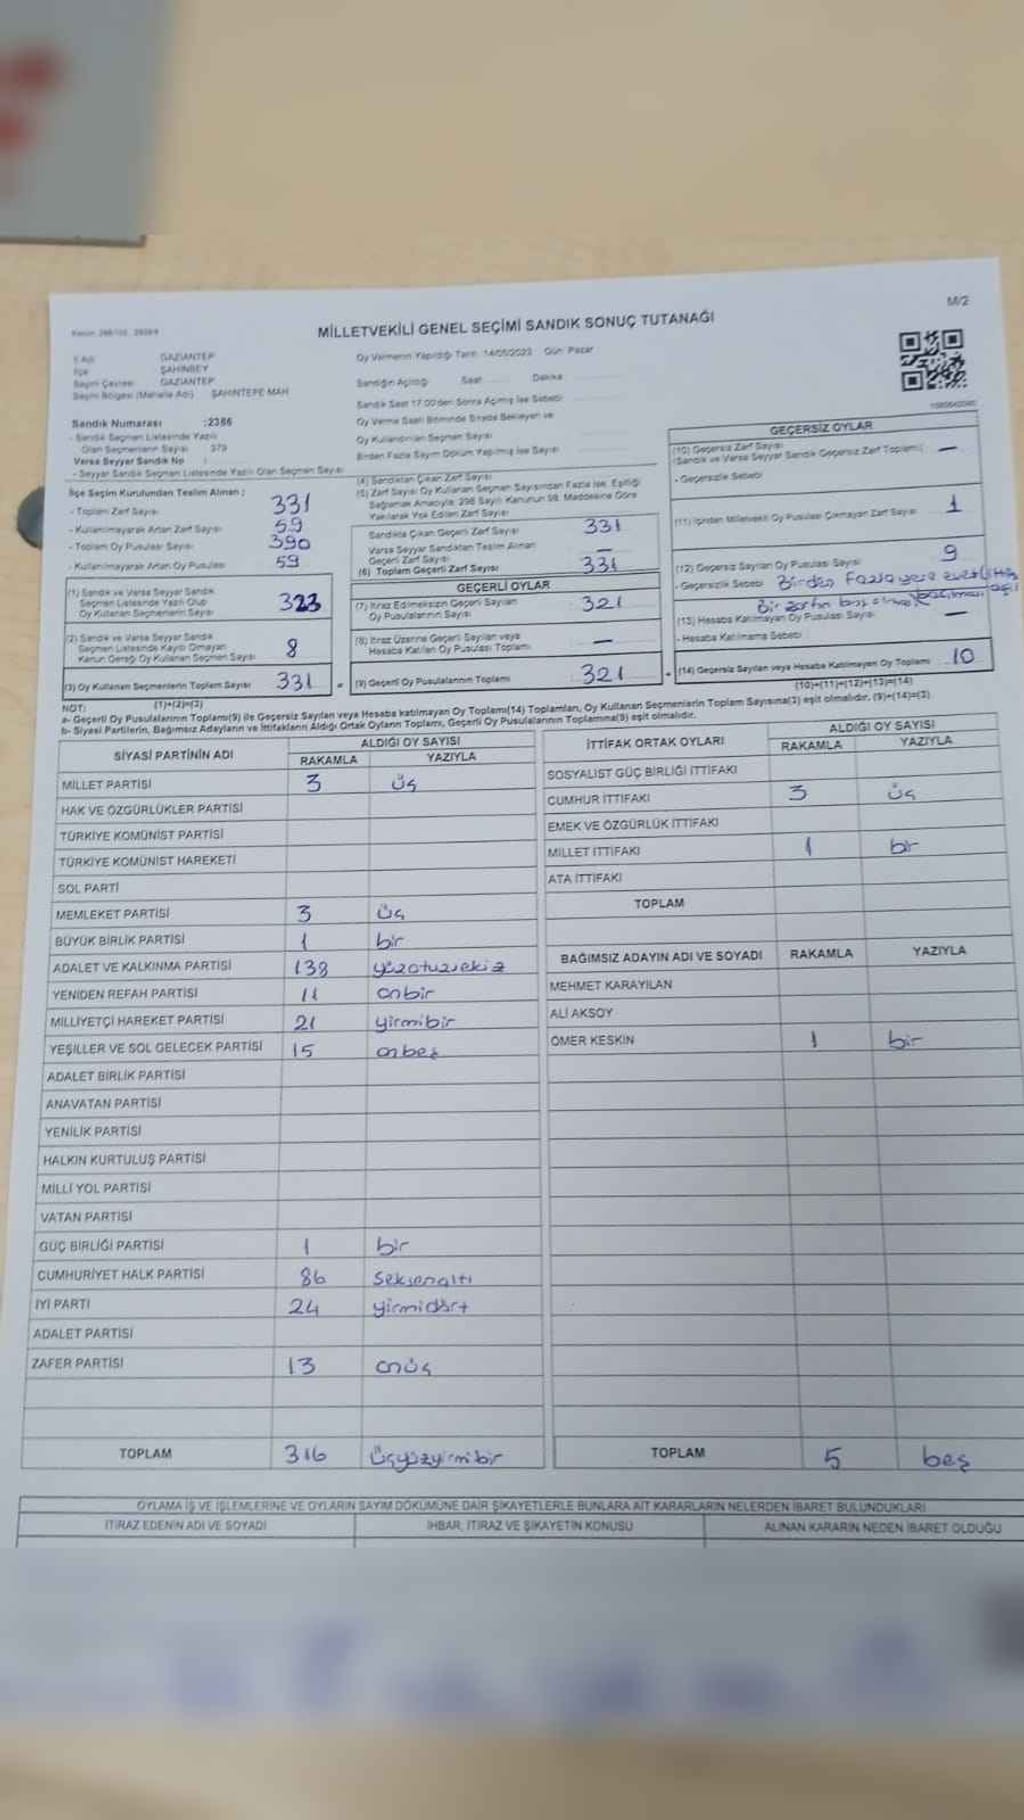 M/2
MİLLETVEKİLİ GENEL SEÇİMİ SANDIK SONUÇ TUTANAĞI
İl Adı GAZİANTEP
İlçe ŞAHİNBEY
Seçim Çevresi GAZİANTEP
Seçim Bölgesi (Mahalle Adı) ŞAHİNTEPE MAH
Oy Vermenin Yapıldığı Tarih: 14/05/2023 Gün: Pazar
Sandığın Açıldığı Saat Dakika
Sandık Saat 17.00'den Sonra Açılmış İse Sebebi
Oy Verme Saati Bitiminde Sırada Bekleyen ve
Oy Kullandırılan Seçmen Sayısı
Birden Fazla Sayım Döküm Yapılmış İse Sayısı
Sandık Numarası :2386
- Sandık Seçmen Listesinde Yazılı
Olan Seçmenlerin Sayısı : 379
Varsa Seyyar Sandık No :
- Seyyar Sandık Seçmen Listesinde Yazılı Olan Seçmen Sayısı
İlçe Seçim Kurulundan Teslim Alınan :
- Toplam Zarf Sayısı 331
- Kullanılmayarak Artan Zarf Sayısı 59
- Toplam Oy Pusulası Sayısı 390
- Kullanılmayarak Artan Oy Pusulası 59
(1) Sandık ve Varsa Seyyar Sandık
Seçmen Listesinde Yazılı Olup
Oy Kullanan Seçmenlerin Sayısı 323
(2) Sandık ve Varsa Seyyar Sandık
Seçmen Listesinde Kayıtlı Olmayan
Kanun Gereği Oy Kullanan Seçmen Sayısı 8
(3) Oy Kullanan Seçmenlerin Toplam Sayısı 331
(1)+(2)=(3)
(4) Sandıktan Çıkan Zarf Sayısı
(5) Zarf Sayısı Oy Kullanan Seçmen Sayısından Fazla İse, Eşitliği
Sağlamak Amacıyla, 298 Sayılı Kanunun 98. Maddesine Göre
Yakılarak Yok Edilen Zarf Sayısı
Sandıkta Çıkan Geçerli Zarf Sayısı 331
Varsa Seyyar Sandıktan Teslim Alınan
Geçerli Zarf Sayısı —
(6) Toplam Geçerli Zarf Sayısı 331
GEÇERLİ OYLAR
(7) İtiraz Edilmeksizin Geçerli Sayılan
Oy Pusulalarının Sayısı 321
(8) İtiraz Üzerine Geçerli Sayılan veya
Hesaba Katılan Oy Pusulası Toplamı —
(9) Geçerli Oy Pusulalarının Toplamı 321
GEÇERSİZ OYLAR
(10) Geçersiz Zarf Sayısı
(Sandık ve Varsa Seyyar Sandık Geçersiz Zarf Toplamı) —
- Geçersizlik Sebebi
(11) İçinden Milletvekili Oy Pusulası Çıkmayan Zarf Sayısı 1
(12) Geçersiz Sayılan Oy Pusulası Sayısı 9
- Geçersizlik Sebebi Birden Fazla yere evet
Bir zarfın boş
(13) Hesaba Katılmayan Oy Pusulası Sayısı —
- Hesaba Katılmama Sebebi
(14) Geçersiz Sayılan veya Hesaba Katılmayan Oy Toplamı 10
(10)+(11)+(12)+(13)=(14)
NOT:
a- Geçerli Oy Pusulalarının Toplamı(9) ile Geçersiz Sayılan veya Hesaba katılmayan Oy Toplamı(14) Toplamları, Oy Kullanan Seçmenlerin Toplam Sayısına(3) eşit olmalıdır. (9)+(14)=(3)
b- Siyasi Partilerin, Bağımsız Adayların ve İttifakların Aldığı Ortak Oyların Toplamı, Geçerli Oy Pusulalarının Toplamına(9) eşit olmalıdır.
SİYASİ PARTİNİN ADI ALDIĞI OY SAYISI
RAKAMLA YAZIYLA
MİLLET PARTİSİ 3 üç
HAK VE ÖZGÜRLÜKLER PARTİSİ
TÜRKİYE KOMÜNİST PARTİSİ
TÜRKİYE KOMÜNİST HAREKETİ
SOL PARTİ
MEMLEKET PARTİSİ 3 üç
BÜYÜK BİRLİK PARTİSİ 1 bir
ADALET VE KALKINMA PARTİSİ 138 yüzotuzsekiz
YENİDEN REFAH PARTİSİ 11 onbir
MİLLİYETÇİ HAREKET PARTİSİ 21 yirmibir
YEŞİLLER VE SOL GELECEK PARTİSİ 15 onbeş
ADALET BİRLİK PARTİSİ
ANAVATAN PARTİSİ
YENİLİK PARTİSİ
HALKIN KURTULUŞ PARTİSİ
MİLLİ YOL PARTİSİ
VATAN PARTİSİ
GÜÇ BİRLİĞİ PARTİSİ 1 bir
CUMHURİYET HALK PARTİSİ 86 seksenaltı
İYİ PARTİ 24 yirmidört
ADALET PARTİSİ
ZAFER PARTİSİ 13 onüç
TOPLAM 316 üçyüzyirmibir
İTTİFAK ORTAK OYLARI ALDIĞI OY SAYISI
RAKAMLA YAZIYLA
SOSYALİST GÜÇ BİRLİĞİ İTTİFAKI
CUMHUR İTTİFAKI 3 üç
EMEK VE ÖZGÜRLÜK İTTİFAKI
MİLLET İTTİFAKI 1 bir
ATA İTTİFAKI
TOPLAM
BAĞIMSIZ ADAYIN ADI VE SOYADI RAKAMLA YAZIYLA
MEHMET KARAYILAN
ALİ AKSOY
ÖMER KESKİN 1 bir
TOPLAM 5 beş
OYLAMA İŞ VE İŞLEMLERİNE VE OYLARIN SAYIM DÖKÜMÜNE DAİR ŞİKAYETLERLE BUNLARA AİT KARARLARIN NELERDEN İBARET BULUNDUKLARI
İTİRAZ EDENİN ADI VE SOYADI İHBAR, İTİRAZ VE ŞİKAYETİN KONUSU ALINAN KARARIN NEDEN İBARET OLDUĞU